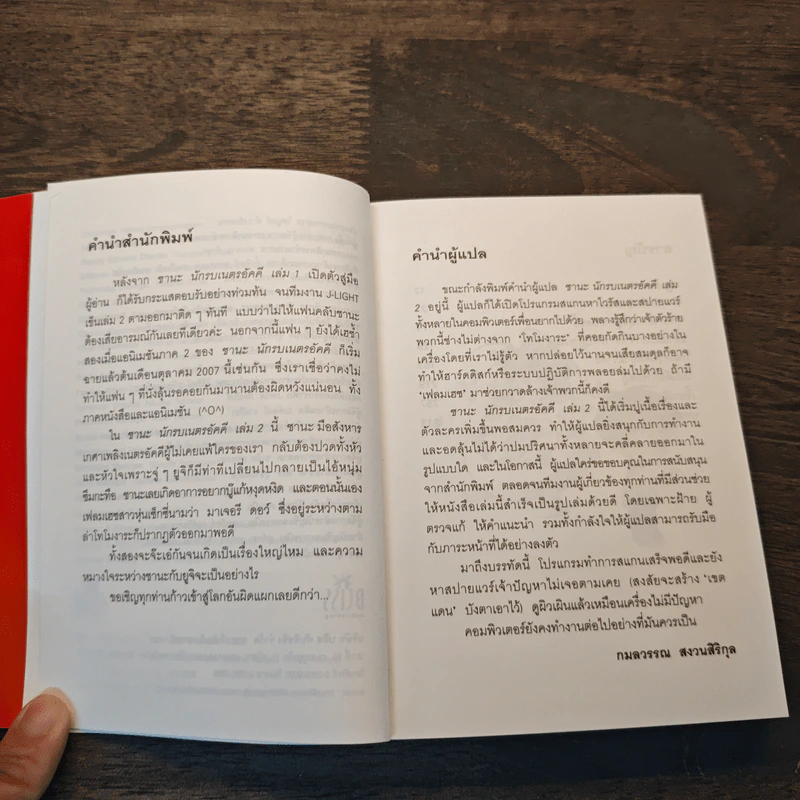 คำนำสำนักพิมพ์
หลังจาก ชานะ นักรบเนตรอัคคี เล่ม 1 เปิดตัวสู่มือ
ผู้อ่าน ก็ได้รับกระแสตอบรับอย่างท่วมท้น จนทีมงาน J-LIGHT
เข็นเล่ม 2 ตามออกมาติด ๆ ทันที แบบว่าไม่ให้แฟนคลับชานะ
ต้องเสียอารมณ์กันเลยทีเดียวค่ะ นอกจากนี้แฟน ๆ ยังได้เฮซ้ำ
สองเมื่อแอนิเมชันภาค 2 ของ ชานะ นักรบเนตรอัคคี ก็เริ่ม
ฉายแล้วต้นเดือนตุลาคม 2007 นี้เช่นกัน ซึ่งเราเชื่อว่าคงไม่
ทำให้แฟน ๆ ที่นั่งลุ้นรอคอยกันมานานต้องผิดหวังแน่นอน ทั้ง
ภาคหนังสือและแอนิเมชัน (^O^)
ใน ชานะ นักรบเนตรอัคคี เล่ม 2 นี้ ชานะ มือสังหาร
เกศาเพลิงเนตรอัคคีผู้ไม่เคยแพ้ใครของเรา กลับต้องปวดทั้งหัว
และหัวใจเพราะจู่ ๆ ยูจิก็มีท่าทีเปลี่ยนไปกลายเป็นไอ้หนุ่ม
ซึมกะทือ ชานะเลยเกิดอาการอยากบู๊แก้หงุดหงิด และตอนนั้นเอง
เฟลมเฮซสาวหุ่นเซ็กซี่นามว่า มาเจอรี ดอว์ ซึ่งอยู่ระหว่างตาม
ล่าโทโมงาระก็ปรากฏตัวออกมาพอดี
ทั้งสองจะจ๊ะเอ๋กันจนเกิดเป็นเรื่องใหญ่ไหม และความ
หมางใจระหว่างชานะกับยูจิจะเป็นอย่างไร
ขอเชิญทุกท่านก้าวเข้าสู่โลกอันผิดแผกเลยดีกว่า...
คำนำผู้แปล
ขณะกำลังพิมพ์คำนำผู้แปล ชานะ นักรบเนตรอัคคี เล่ม
2 อยู่นี้ ผู้แปลก็ได้เปิดโปรแกรมสแกนหาไวรัสและสปายแวร์
ทั้งหลายในคอมพิวเตอร์เพื่อนยากไปด้วย พลางรู้สึกว่าเจ้าตัวร้าย
พวกนี้ช่างไม่ต่างจาก "โทโมงาระ" ที่คอยกัดกินบางอย่างใน
เครื่องโดยที่เราไม่รู้ตัว หากปล่อยไว้นานจนเสียสมดุลก็อาจ
ทำให้ฮาร์ดดิสก์หรือระบบปฏิบัติการพลอยล่มไปด้วย ถ้ามี
"เฟลมเฮซ" มาช่วยกวาดล้างเจ้าพวกนี้ก็คงดี
ชานะ นักรบเนตรอัคคี เล่ม 2 นี้ได้เริ่มปูเนื้อเรื่องและ
ตัวละครเพิ่มขึ้นพอสมควร ทำให้ผู้แปลยิ่งสนุกกับการทำงาน
และอดลุ้นไม่ได้ว่าปมปริศนาทั้งหลายจะคลี่คลายออกมาใน
รูปแบบใด และในโอกาสนี้ ผู้แปลใคร่ขอขอบคุณในการสนับสนุน
จากสำนักพิมพ์ ตลอดจนทีมงานผู้เกี่ยวข้องทุกท่านที่มีส่วนช่วย
ให้หนังสือเล่มนี้สำเร็จเป็นรูปเล่มด้วยดี โดยเฉพาะฝ่าย ผู้
ตรวจแก้ ให้คำแนะนำ รวมทั้งกำลังใจให้ผู้แปลสามารถรับมือ
กับภาระหน้าที่ได้อย่างลงตัว
มาถึงบรรทัดนี้ โปรแกรมทำการสแกนเสร็จพอดีและยัง
หาสปายแวร์เจ้าปัญหาไม่เจอตามเคย (สงสัยจะสร้าง "เขต
แดน" บังตาเอาไว้) ดูผิวเผินแล้วเหมือนเครื่องไม่มีปัญหา
คอมพิวเตอร์ยังคงทำงานต่อไปอย่างที่มันควรเป็น
กมลวรรณ สงวนสิริกุล